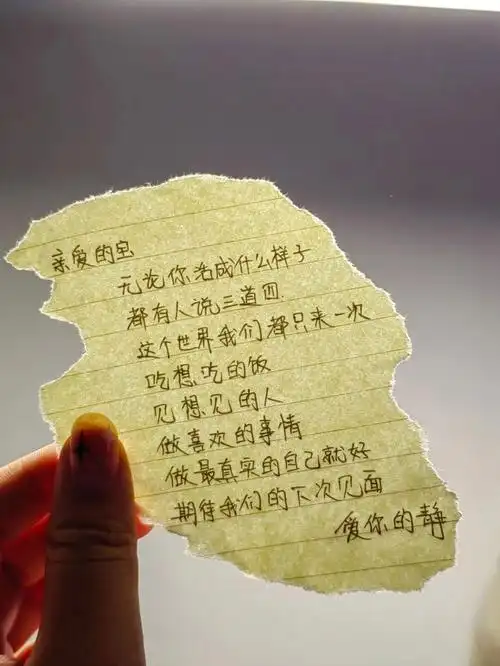 亲爱的宝
无论你活成什么样子
都有人说三道四.
这个世界我们都只来一次
吃想吃的饭
见想见的人
做喜欢的事情
做最真实的自己就好
期待我们的下次见面
爱你的静